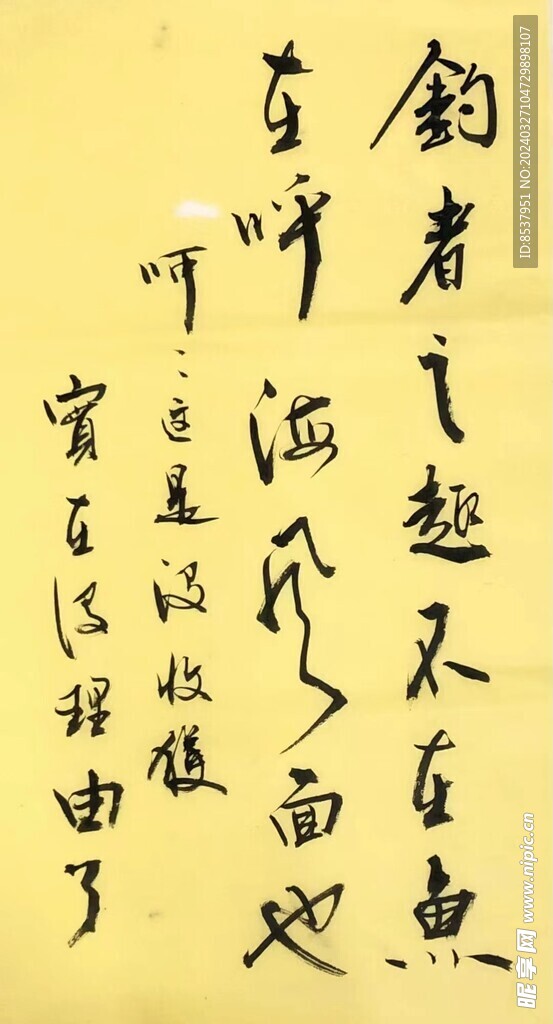 釣者之趣不在魚
在呼海风面也
呵〻这是没收獲
實在没理由了
ID:8537951 NO:20240327104729898107
昵享网 www.nipic.cn